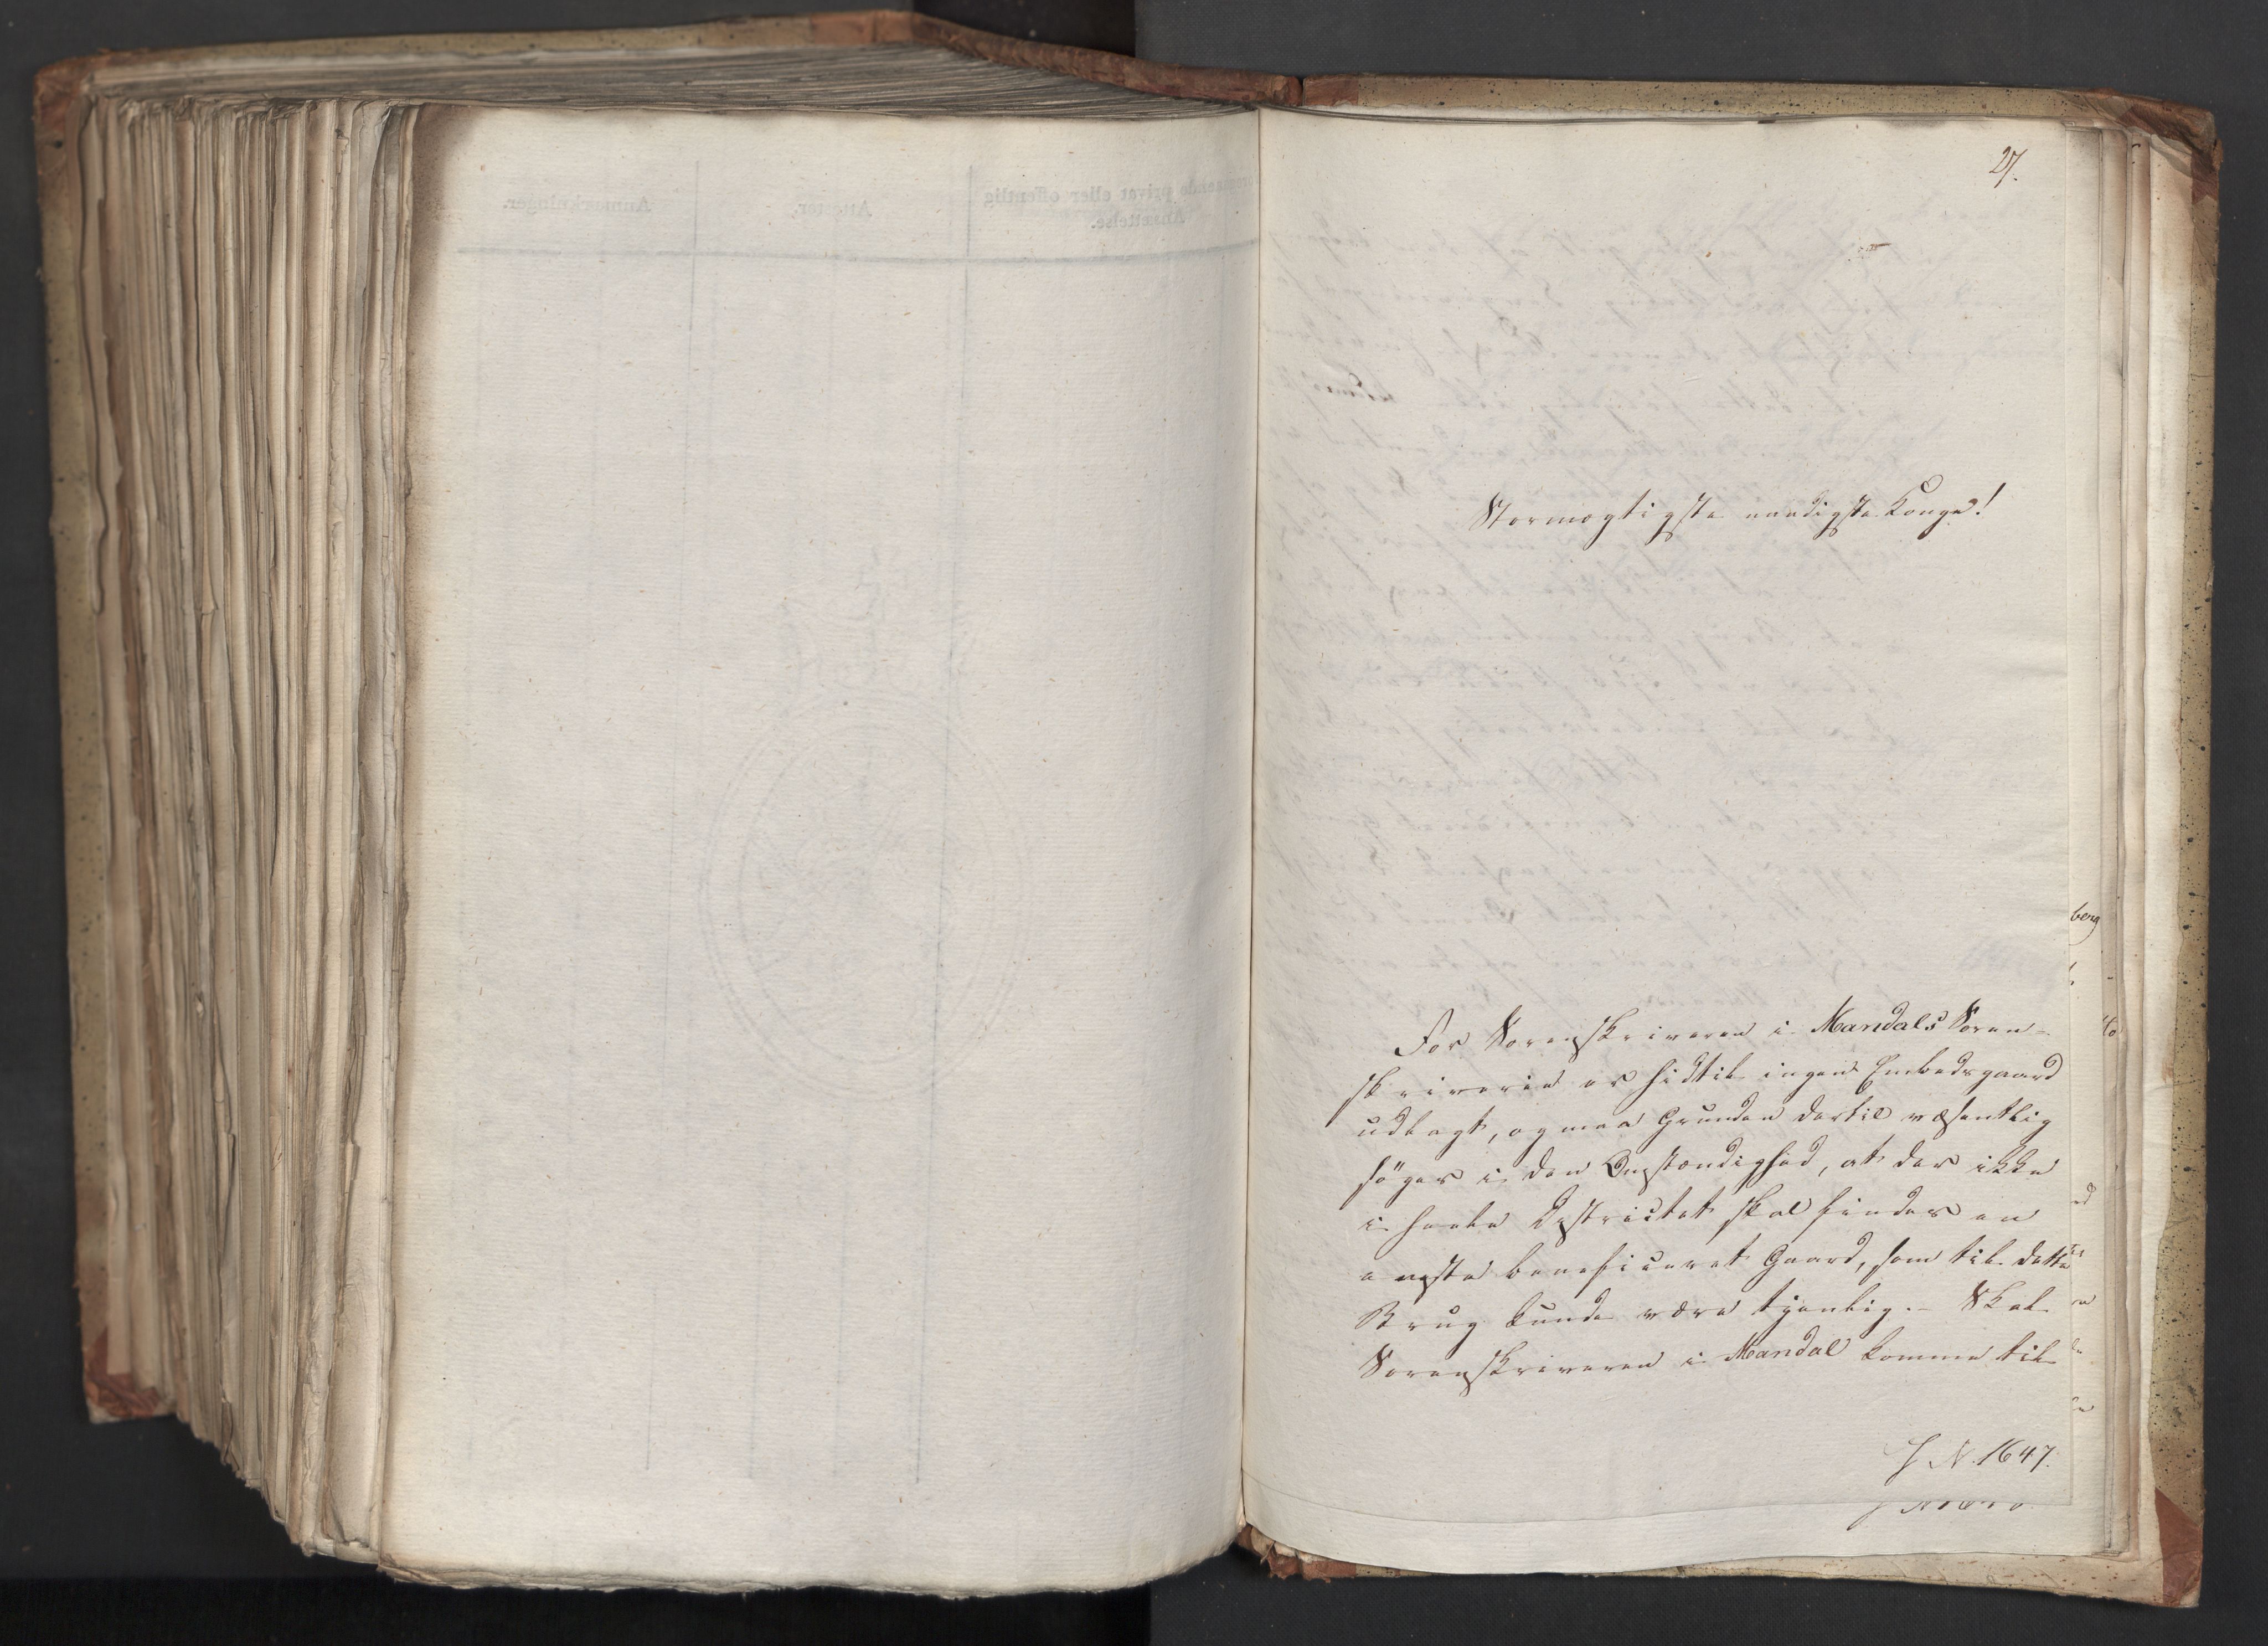 Anmærkninger.
Attester.
privat eller offentlig
Ansættelse.
27.
Stormægtigste naadigste Konge!
For Sorenskriveren i Mandals Soren-
skriverie er hidtil ingen Embedsgaard
udlagt, og maa Grunden dertil væsentlig
søges i den Omstændighed, at der ikke
i heele Districtet skal findes en
eneste beneficeret Gaard, som til dette
Brug kunde være tjenlig. – Skal
Sorenskriveren i Mandal komme til
J. N. 1647.
berg